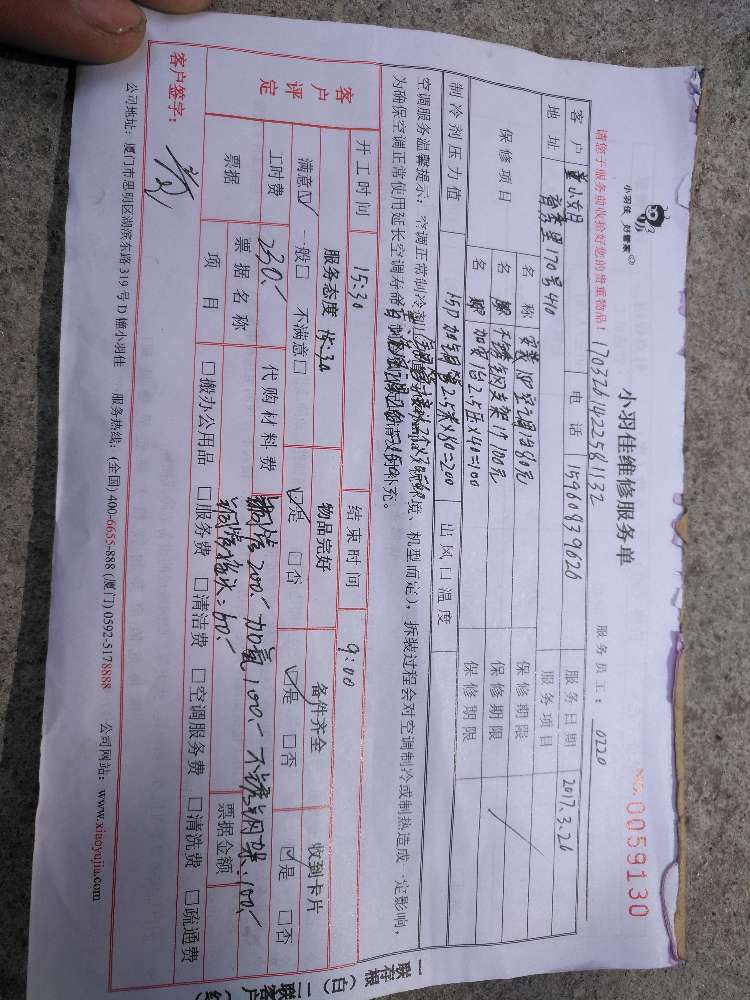 小羽佳 好管家
小羽佳维修服务单
NO.0059130
请您于服务前收拾好您的贵重物品！
170326142258 1132
服务员工： 0220
客户
电话 15960839026
服务日期 2017.3.26
地址 170号410
服务项目
保修项目
名称 安装
保修期限
名称 不锈钢支架1付100元
保修期限
名称 加氟 2.5压×40=100
保修期限
制冷剂压力值 15P加铜管2.5米×80=200
出风口温度
空调服务温馨提示：空调正常制冷剂
境、机型而定），拆装过程会对空调制冷或制热造成一定影响，
为确保空调正常使用延长空调寿命
补充。
开工时间 15:30
结束时间 9:00
客户评定
服务态度
物品完好
备件齐全
收到卡片
满意☑ 一般□ 不满意□
☑是 □否
☑是 □否
☑是 □否
工时费 230.-
代购材料费 铜管200.-加氟100.-不锈钢架100.-
票据
票据名称
票据金额
项目
□搬办公用品 □服务费 □清洁费 □空调服务费 □清洗费 □疏通费
客户签字：
公司地址：厦门市思明区湖滨东路319号D幢小羽佳 服务热线：(全国) 400-6655-888 (厦门) 0592-5178888 公司网站：www.xiaoyujia.com
一联存根（白）二联客户（红